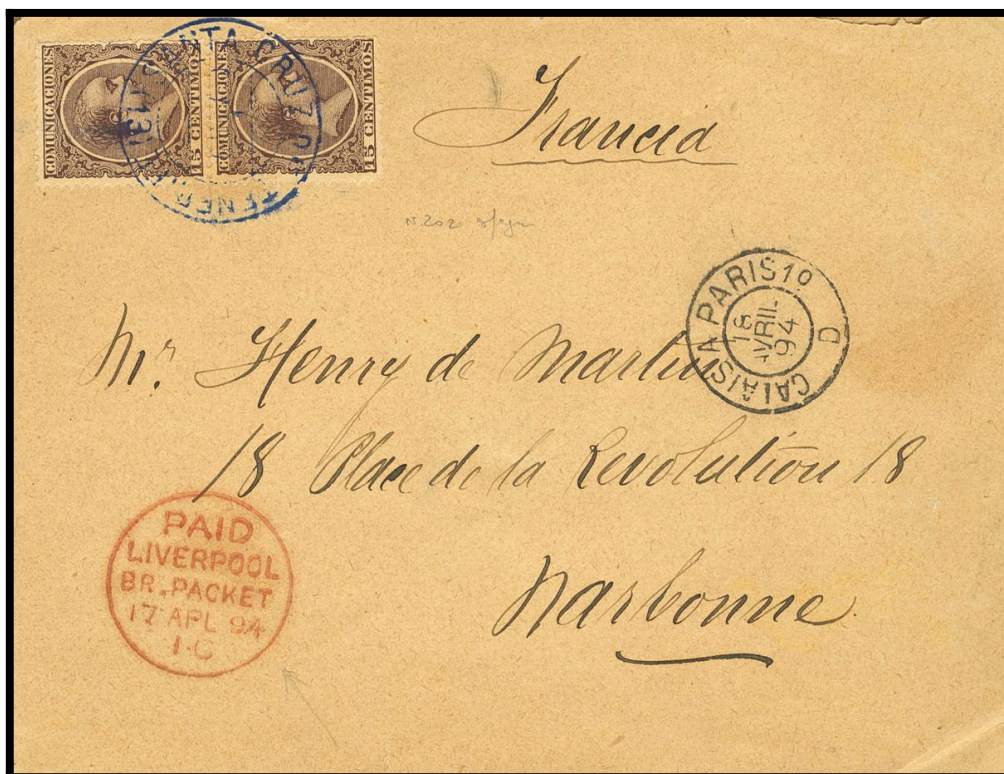 COMUNICACIONES
15 CENTIMOS
COMUNICACIONES
15 CENTIMOS
SANTA CRUZ DE TENERIFE
Francia
N 202
CALAIS A PARIS 1º D
18
AVRIL
94
Mr. Henry de Martin
18 Place de la Revolution 18
Narbonne
PAID
LIVERPOOL
BR. PACKET
17 APL 94
1·C